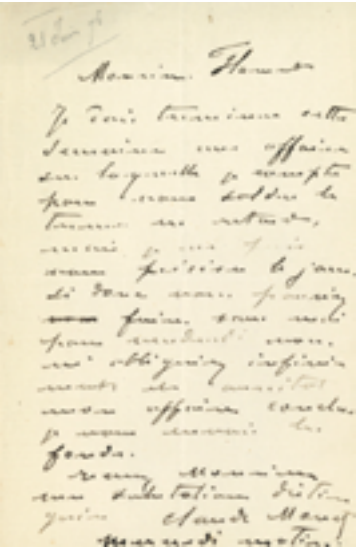 Monsieur Flament
Je dois terminer cette
semaine une affaire
sur laquelle je compte
pour vous solder le
terme en retard,
mais je ne puis
vous préciser le jour.
si donc vous pouviez
faire sans moi
pour vendredi vous
m'obligeriez infini
ment et aussitôt
mon affaire conclue
je vous envoie les
fonds.
Monsieur
mes salutations distin
guées Claude Monet
mercredi matin